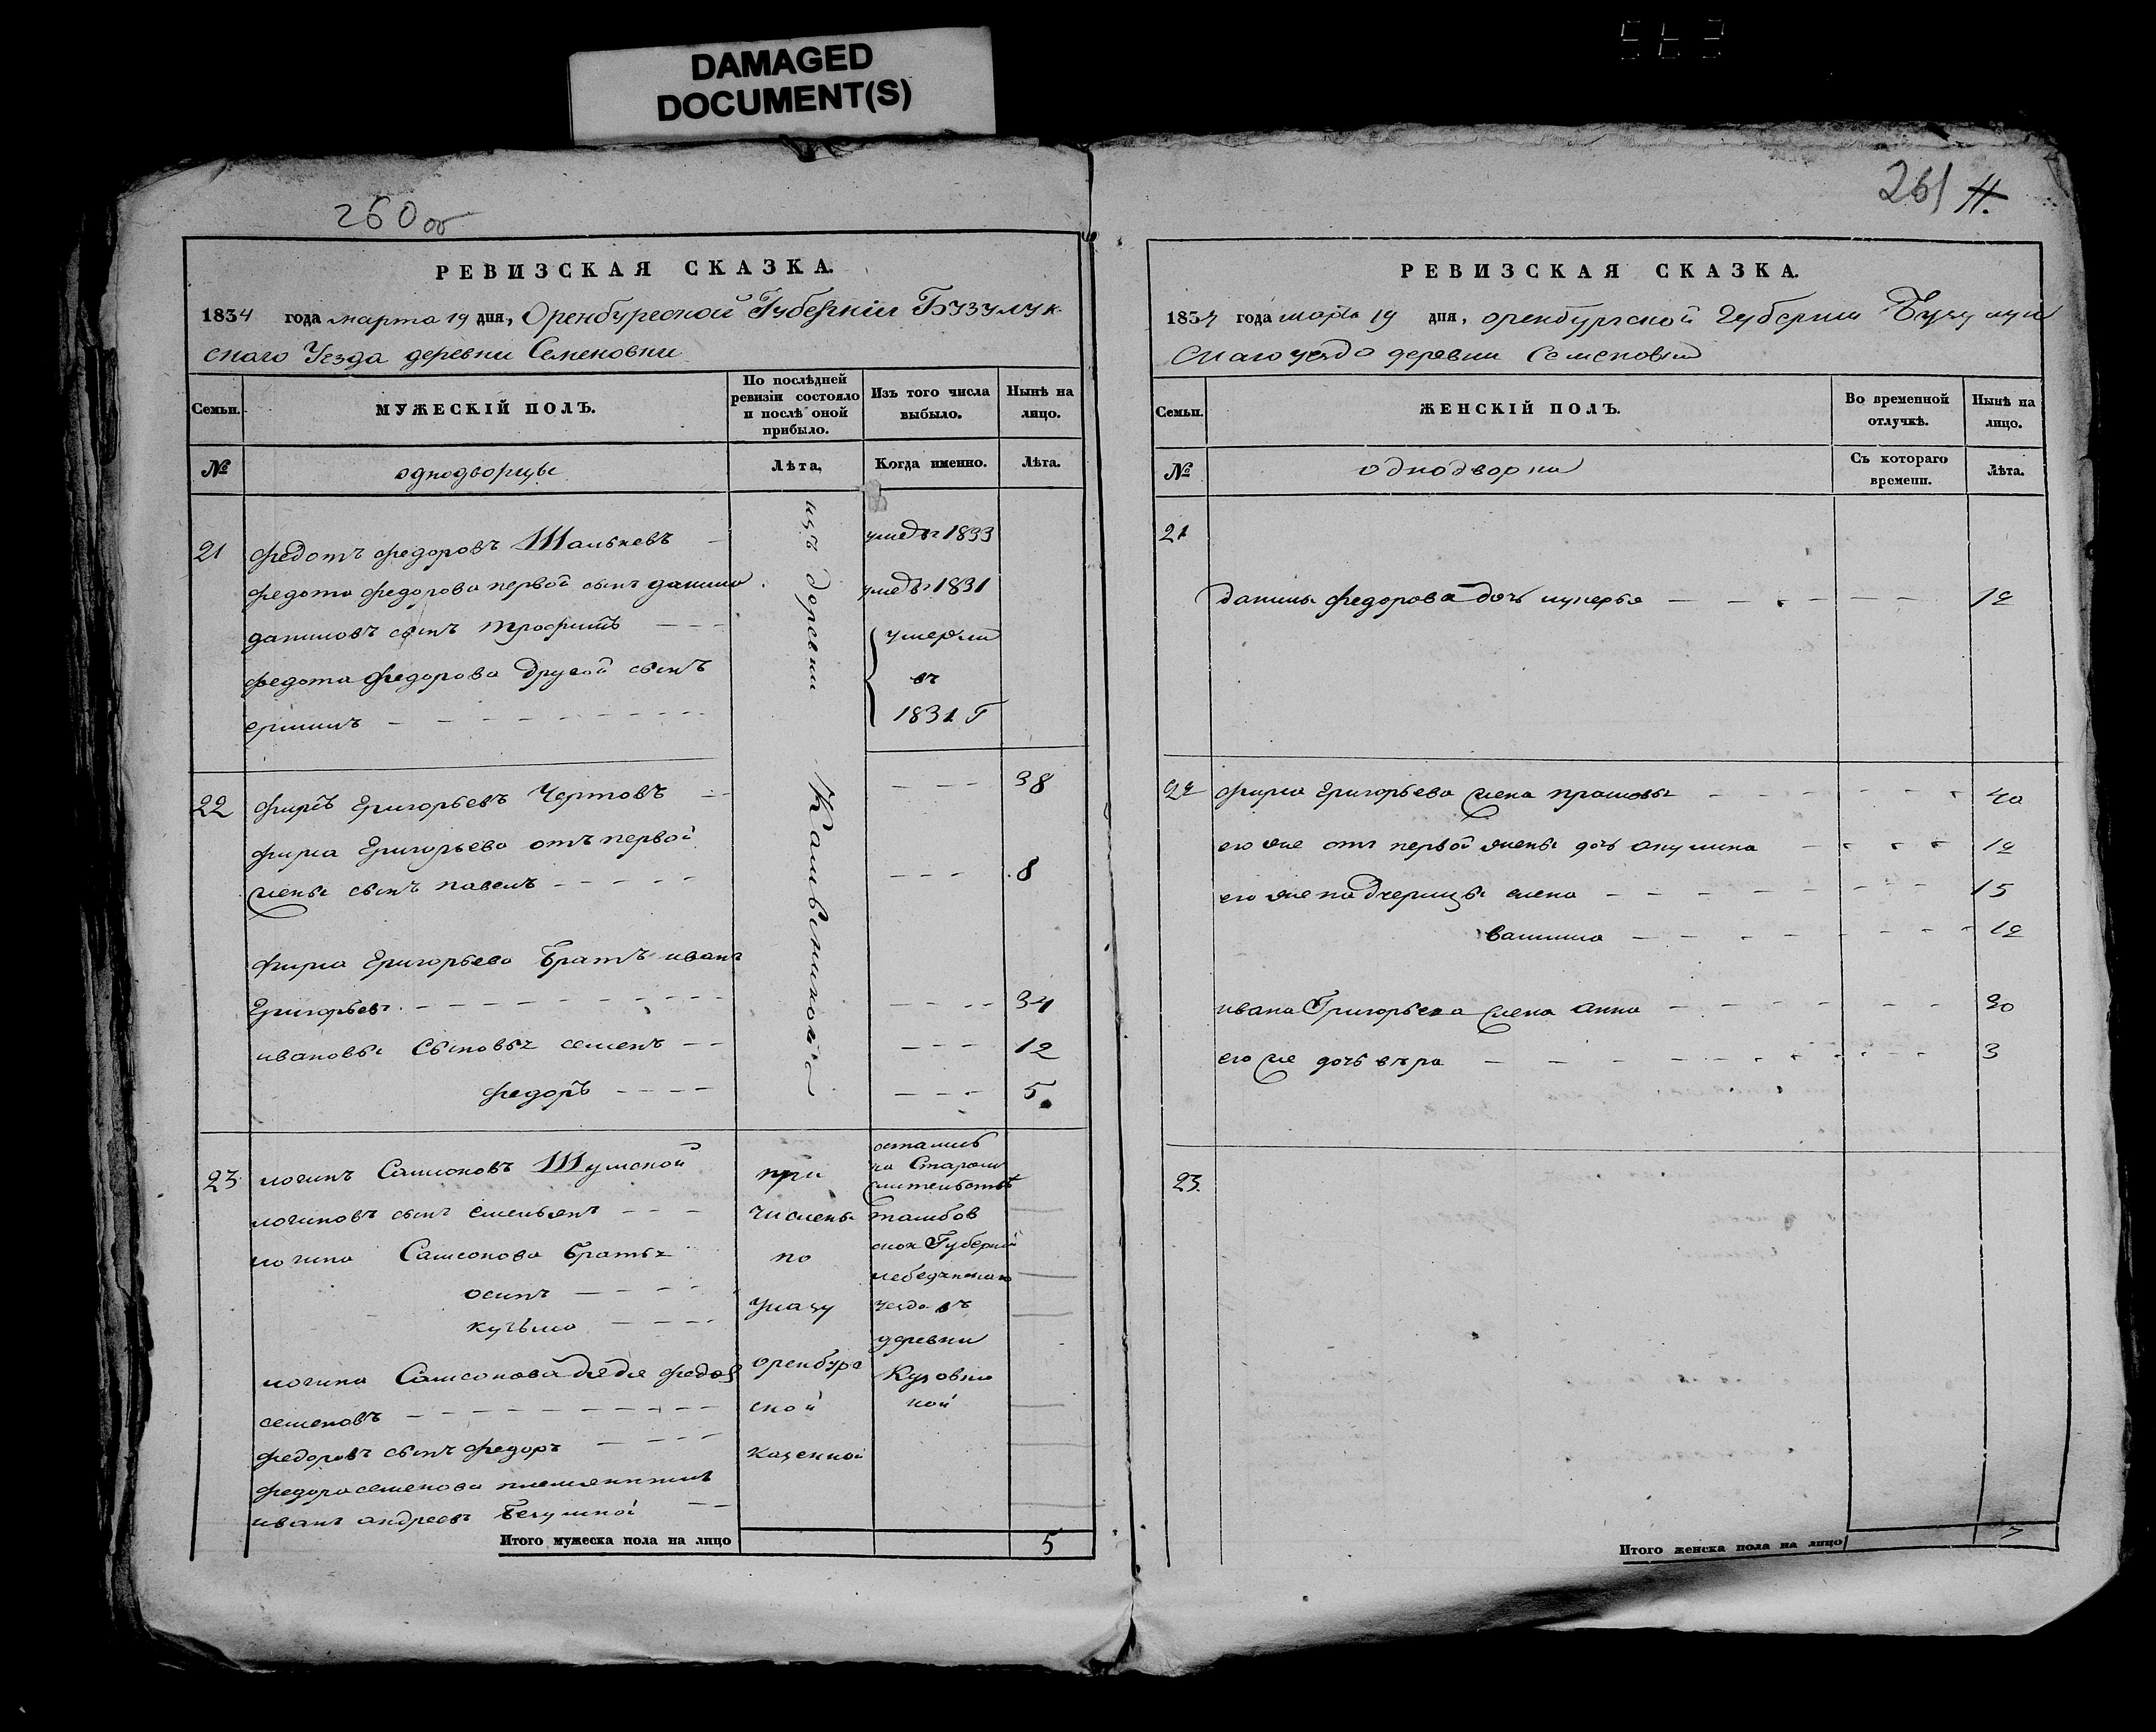 DAMAGED
DOCUMENT(S)
260 об
РЕВИЗСКАЯ СКАЗКА.
1834 года марта 19 дня, Оренбургской Губернии Бузулук
скаго Уезда деревни Семеновки
Семьи.
МУЖЕСКІЙ ПОЛЪ.
По послѣдней
ревизіи состояло
и послѣ оной
прибыло.
Изъ того числа
выбыло.
Нынѣ на
лицо.
№
однодворцы
Лѣта.
Когда именно.
Лѣта.
изъ деревни
21 федотъ федоровъ умеръ 1833
федота федорова первой сынъ данила умеръ 1831
даниловъ сынъ трофимъ умерли
федота федорова другой сынъ въ
1831 Г
22 фирсъ григорьевъ Чертовъ 38
фирса григорьева отъ первой
жены сынъ павелъ 8
фирса григорьева братъ иванъ
григорьевъ 34
ивановы сыновья семенъ 12
федоръ 5
23 логинъ Самсоновъ Шумской при остались
на Старом
жительствѣ
логиновъ сынъ емельянъ числены тамбов
логина Самсонова братья по ской Губерний
осипъ лебедянскаго
кузьма указу уезда въ
деревни
логина Самсонова дядя федоръ оренбург
семеновъ ской
федоровъ сынъ федоръ казенной
федора семенова племянникъ
иванъ андреевъ
Итого мужеска пола на лицо 5
261 11.
РЕВИЗСКАЯ СКАЗКА.
1834 года марта 19 дня, оренбургской губернии Бузулук
скаго уезда деревни Семеновки
Семьи.
ЖЕНСКІЙ ПОЛЪ.
Во временной
отлучкѣ.
Нынѣ на
лицо.
№
однодворки
Съ котораго
времени.
Лѣта.
21
данилы федорова дочь лукерья 12
22 фирса григорьева жена 40
его же отъ первой жены дочь акулина 12
его же падчерицы елена 15
12
ивана Григорьева жена анна 30
его же дочь вѣра 3
23.
Итого женска пола на лицо 7